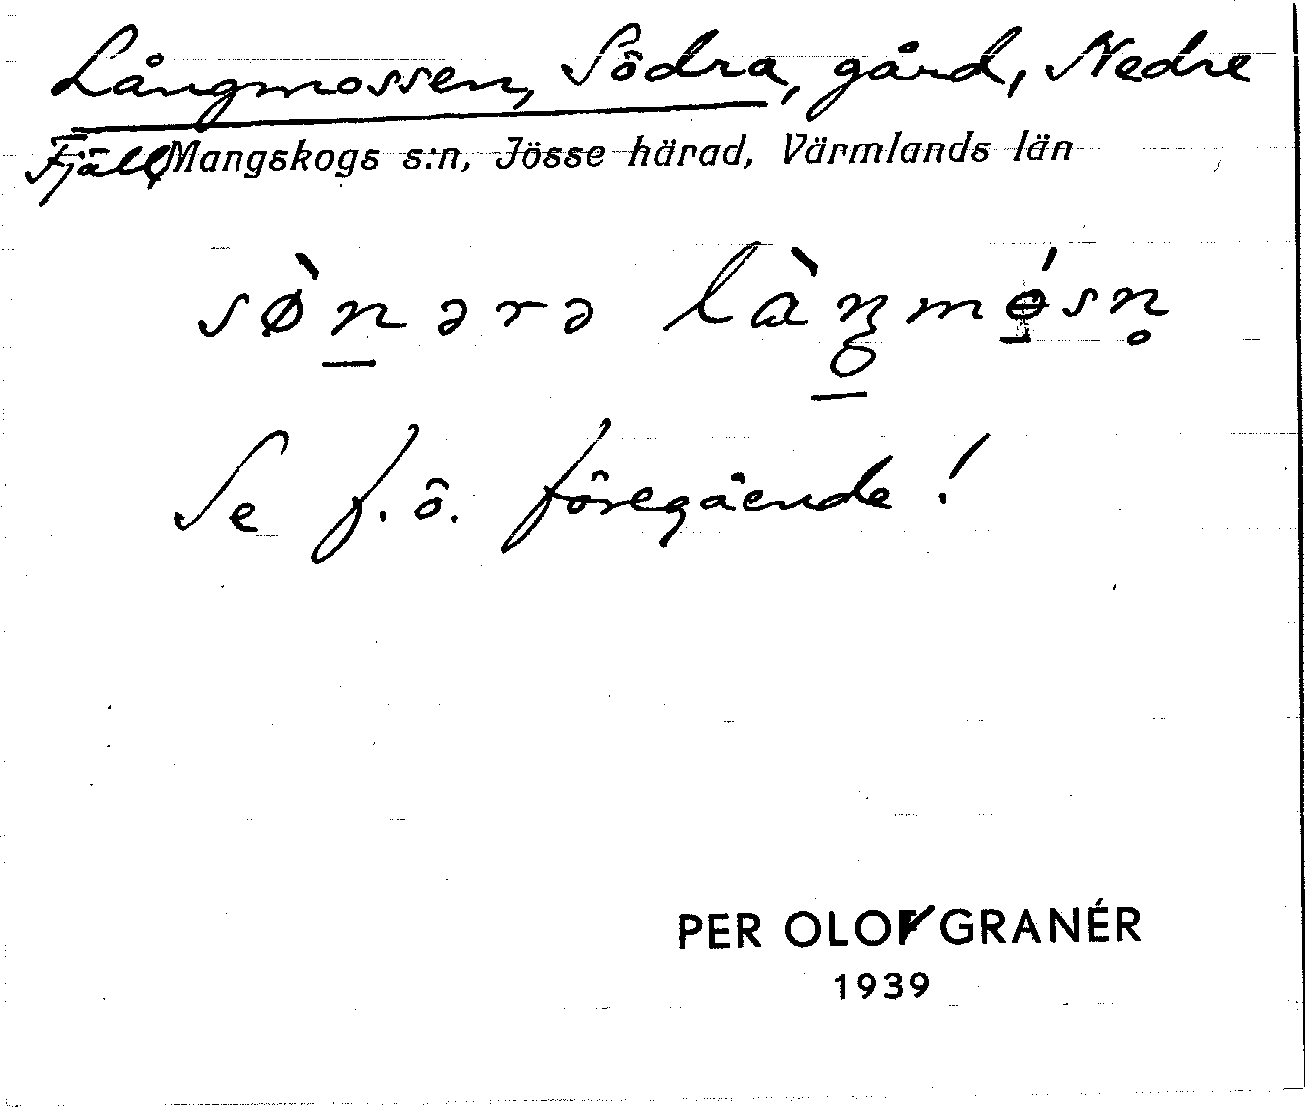 Långmossen, Södra, gård, Nedre
Fjäll, Mangskogs s:n, Jösse härad, Värmlands län
sø̀n̲ərə là
Se f. ö. föregående!
PER OLOF GRANÉR
1939